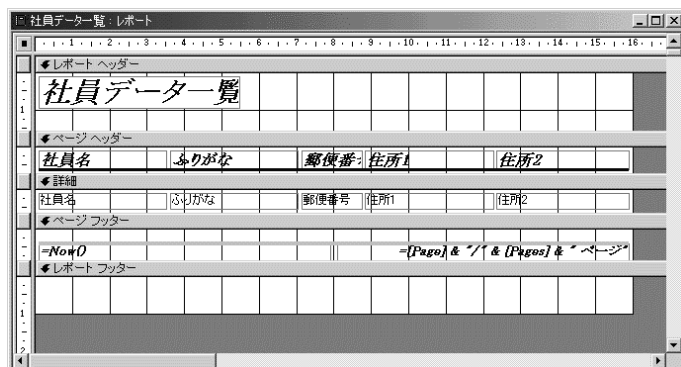 社員データ一覧 : レポート
1 2 3 4 5 6 7 8 9 10 11 12 13 14 15 16
レポート ヘッダー
社員データ一覧
1
ページ ヘッダー
社員名 ふりがな 郵便番 住所1 住所2
詳細
社員名 ふりがな 郵便番号 住所1 住所2
ページ フッター
=Now() =[Page] & "/" & [Pages] & " ページ"
レポート フッター
1
2